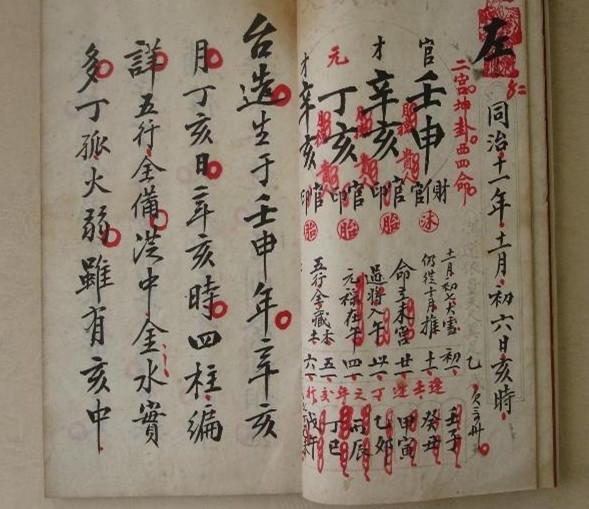 左
同治十一年十一月初六日亥時
二宮坤卦西四命
官 壬申
才 辛亥 官印
元 丁亥 官印
才 辛亥 官印
沐 胎 胎 胎
十一月初七大雪
仍從十月推
命立未宮
過將入午
元祿在午
初一 壬子
十一 癸丑
廿一 甲寅
卅一 乙卯
四一 丙辰
五一 丁巳
六一 戊午
台造生于壬申年辛亥
月丁亥日辛亥時四柱編
詳五行全備洪中金水實
多丁孤火弱雖有亥中